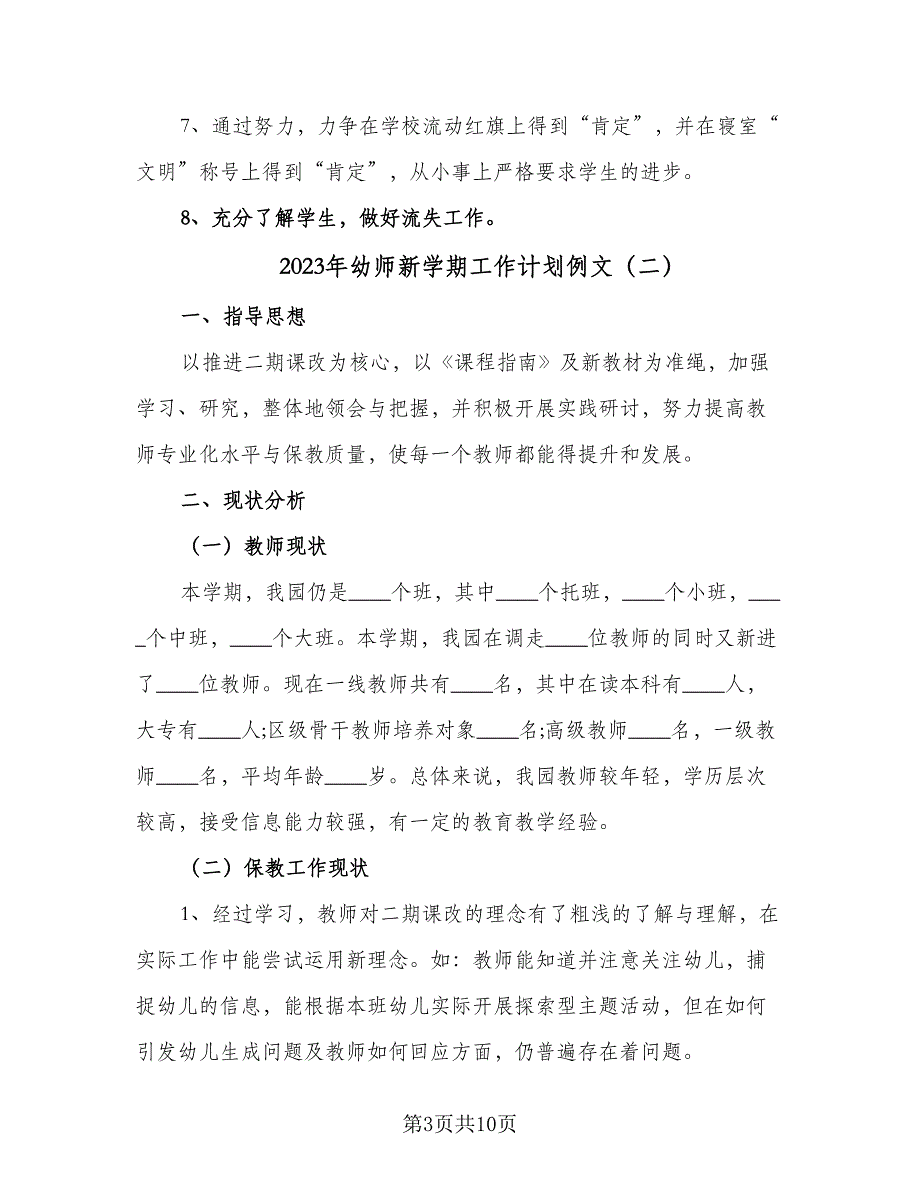 7、通过努力，力争在学校流动红旗上得到“肯定”，并在寝室“
文明”称号上得到“肯定”，从小事上严格要求学生的进步。
8、充分了解学生，做好流失工作。
2023年幼师新学期工作计划例文（二）
一、指导思想
以推进二期课改为核心，以《课程指南》及新教材为准绳，加强
学习、研究，整体地领会与把握，并积极开展实践研讨，努力提高教
师专业化水平与保教质量，使每一个教师都能得提升和发展。
二、现状分析
（一）教师现状
本学期，我园仍是____个班，其中____个托班，____个小班，___
_个中班，____个大班。本学期，我园在调走____位教师的同时又新进
了____位教师。现在一线教师共有____名，其中在读本科有____人，
大专有____人;区级骨干教师培养对象____名;高级教师____名，一级教
师____名，平均年龄____岁。总体来说，我园教师较年轻，学历层次
较高，接受信息能力较强，有一定的教育教学经验。
（二）保教工作现状
1、经过学习，教师对二期课改的理念有了粗浅的了解与理解，在
实际工作中能尝试运用新理念。如：教师能知道并注意关注幼儿，捕
捉幼儿的信息，能根据本班幼儿实际开展探索型主题活动，但在如何
引发幼儿生成问题及教师如何回应方面，仍普遍存在着问题。
第3页共10页